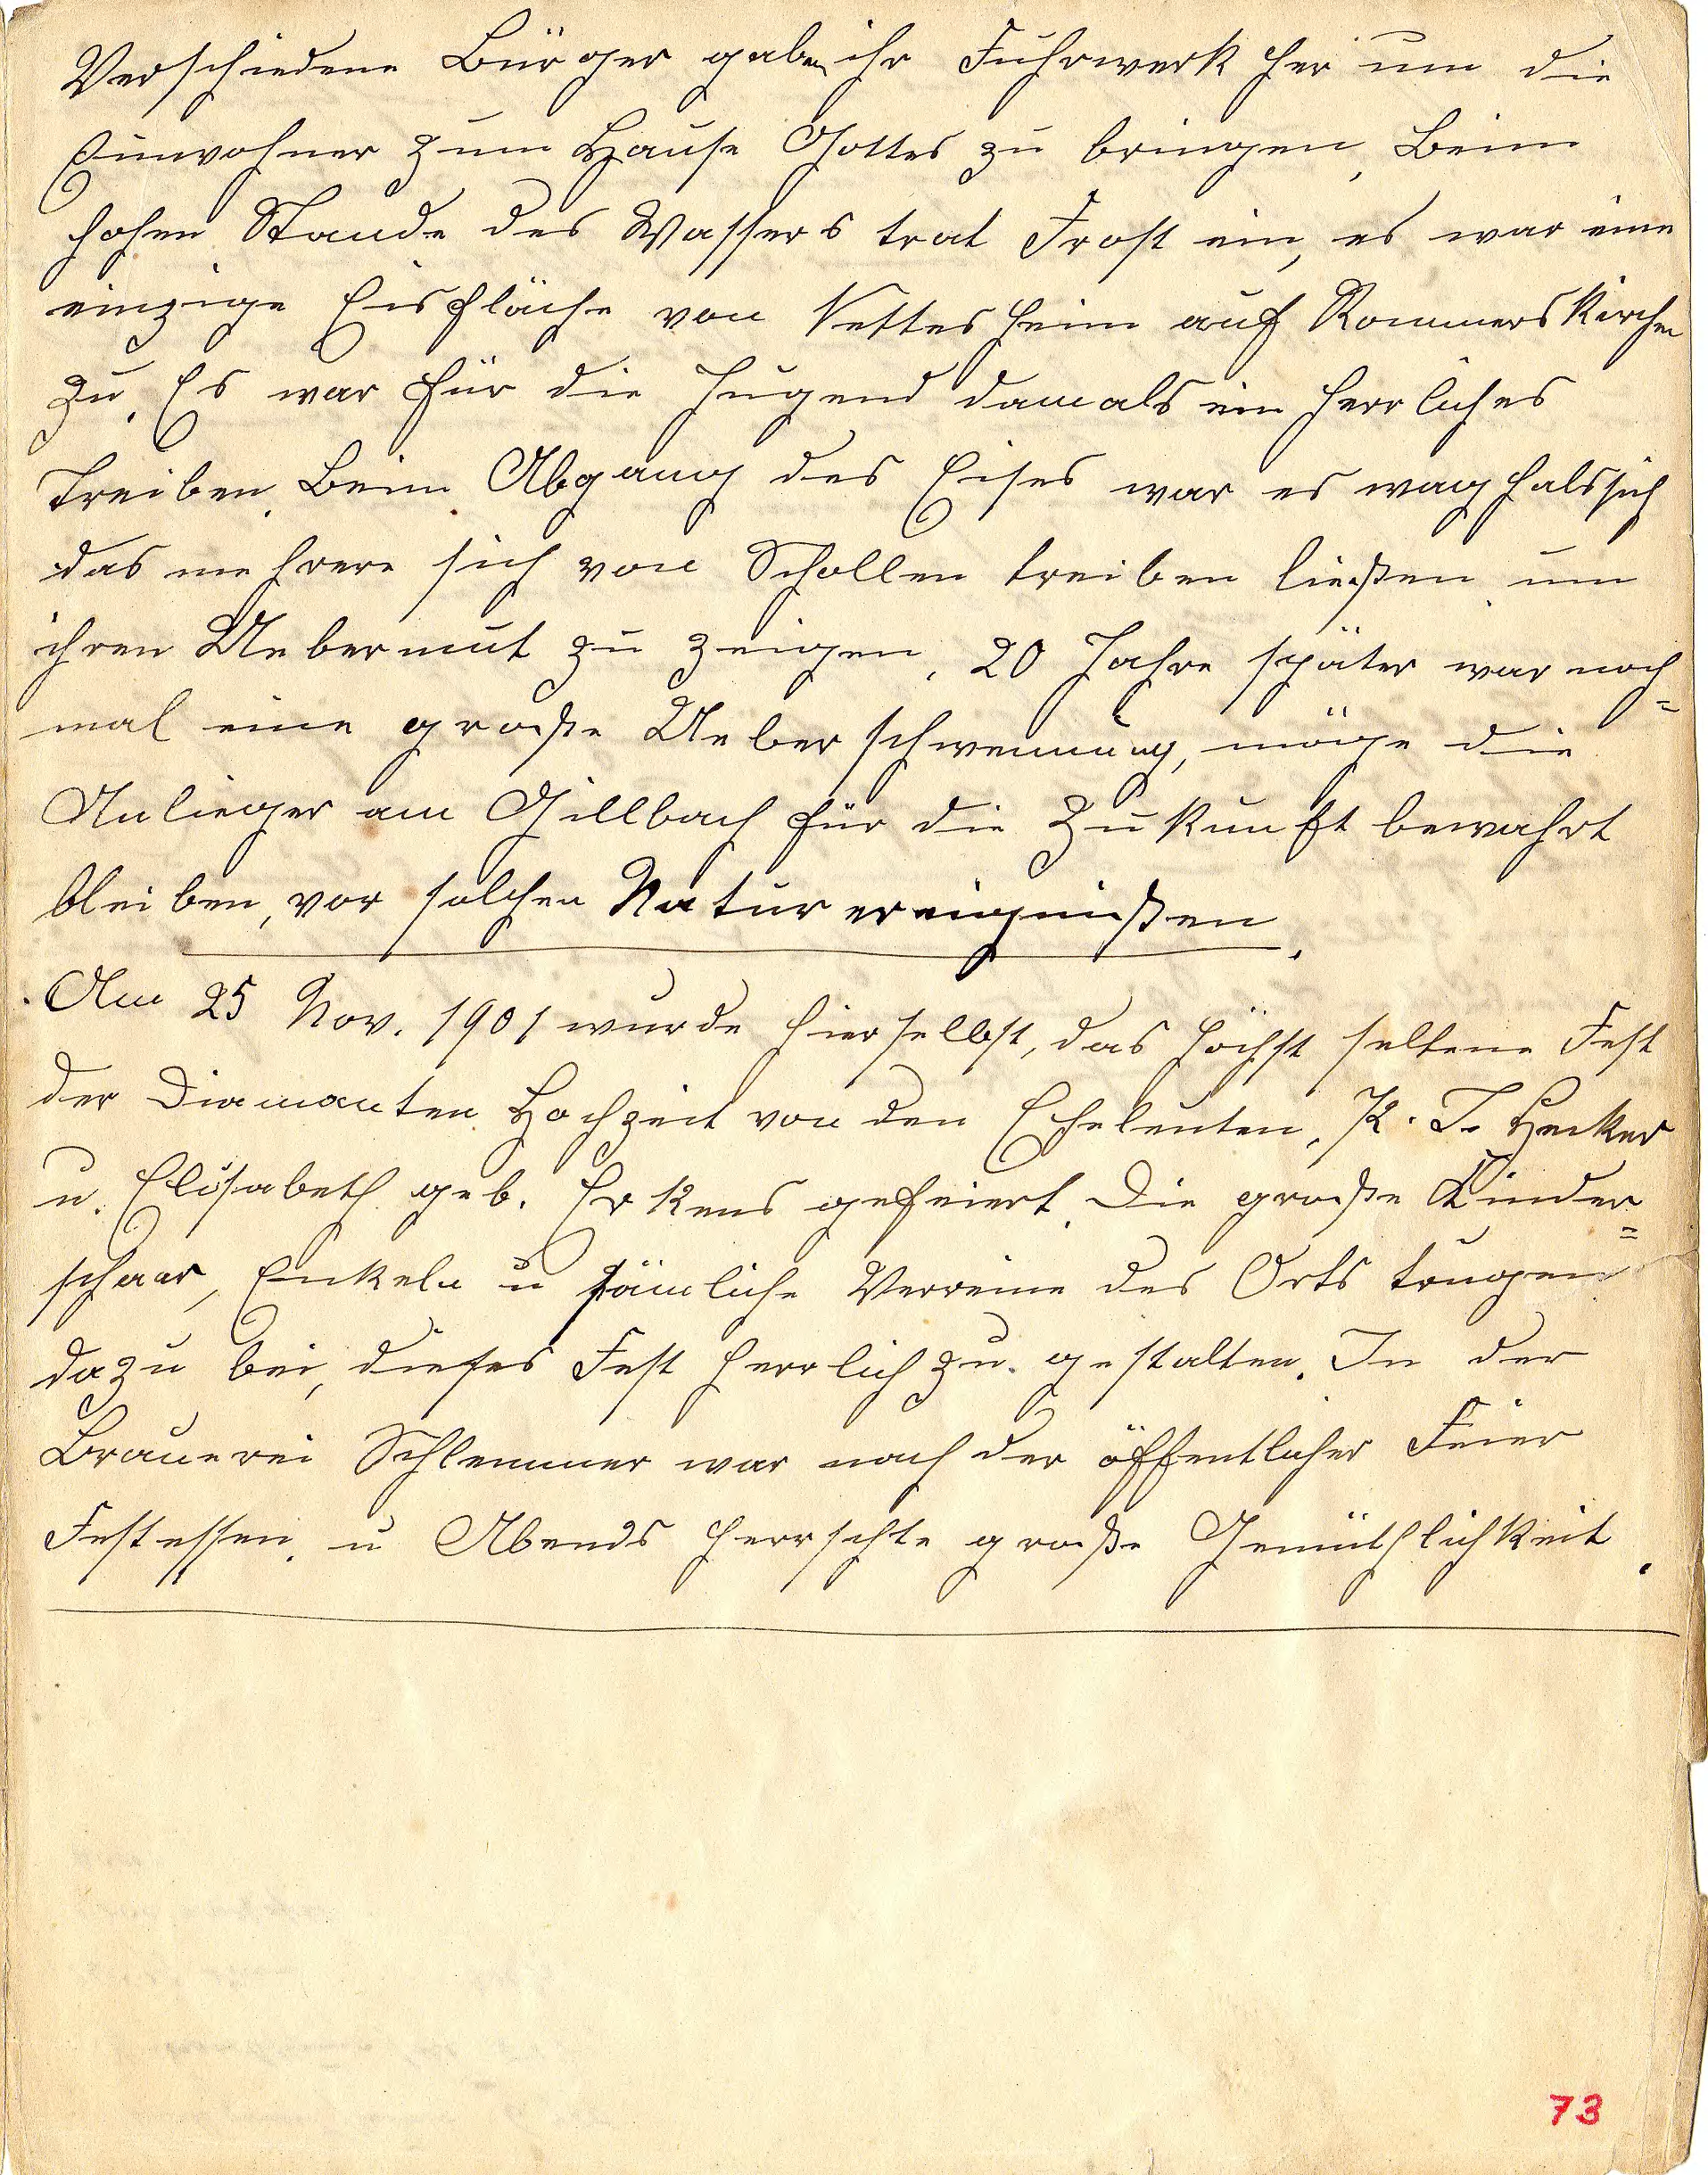 Verschiedene Bürger gaben ihr Fuhrwerk her um die
Einwohner zum Hause Gottes zu bringen, Beim
hohen Stande des Wassers trat Frost ein, es war eine
einzige Eisfläche von Nettesheim auf Rommerskirchen
zu. Es war für die Jugend damals ein herrliches
Treiben. Beim Abgang des Eises war es waghalssich
das mehrere sich von Schollen treiben ließen um
ihren Uebermut zu zeigen, 20 Jahre später war noch=
mal eine große Ueberschwemung, möge die
Anlieger am Gillbach für die Zukunft bewahrt
bleiben, vor solchen Naturereignißen.
Am 25 Nov. 1901 wurde hierselbst, das höchst seltene Fest
der Diamanten Hochzeit von den Eheleuten, P. J. Hecker
u. Elisabeth geb. Erkens gefeiert. Die große Kinder=
schaar, Enkeln u sämliche Vereine des Orts trugen
dazu bei, dieses Fest herrlich zu gestalten. In der
Brauerei Schlemmer war nach der öffentlicher Feier
Festessen. u Abends herrschte große Gemüthlichkeit.
73